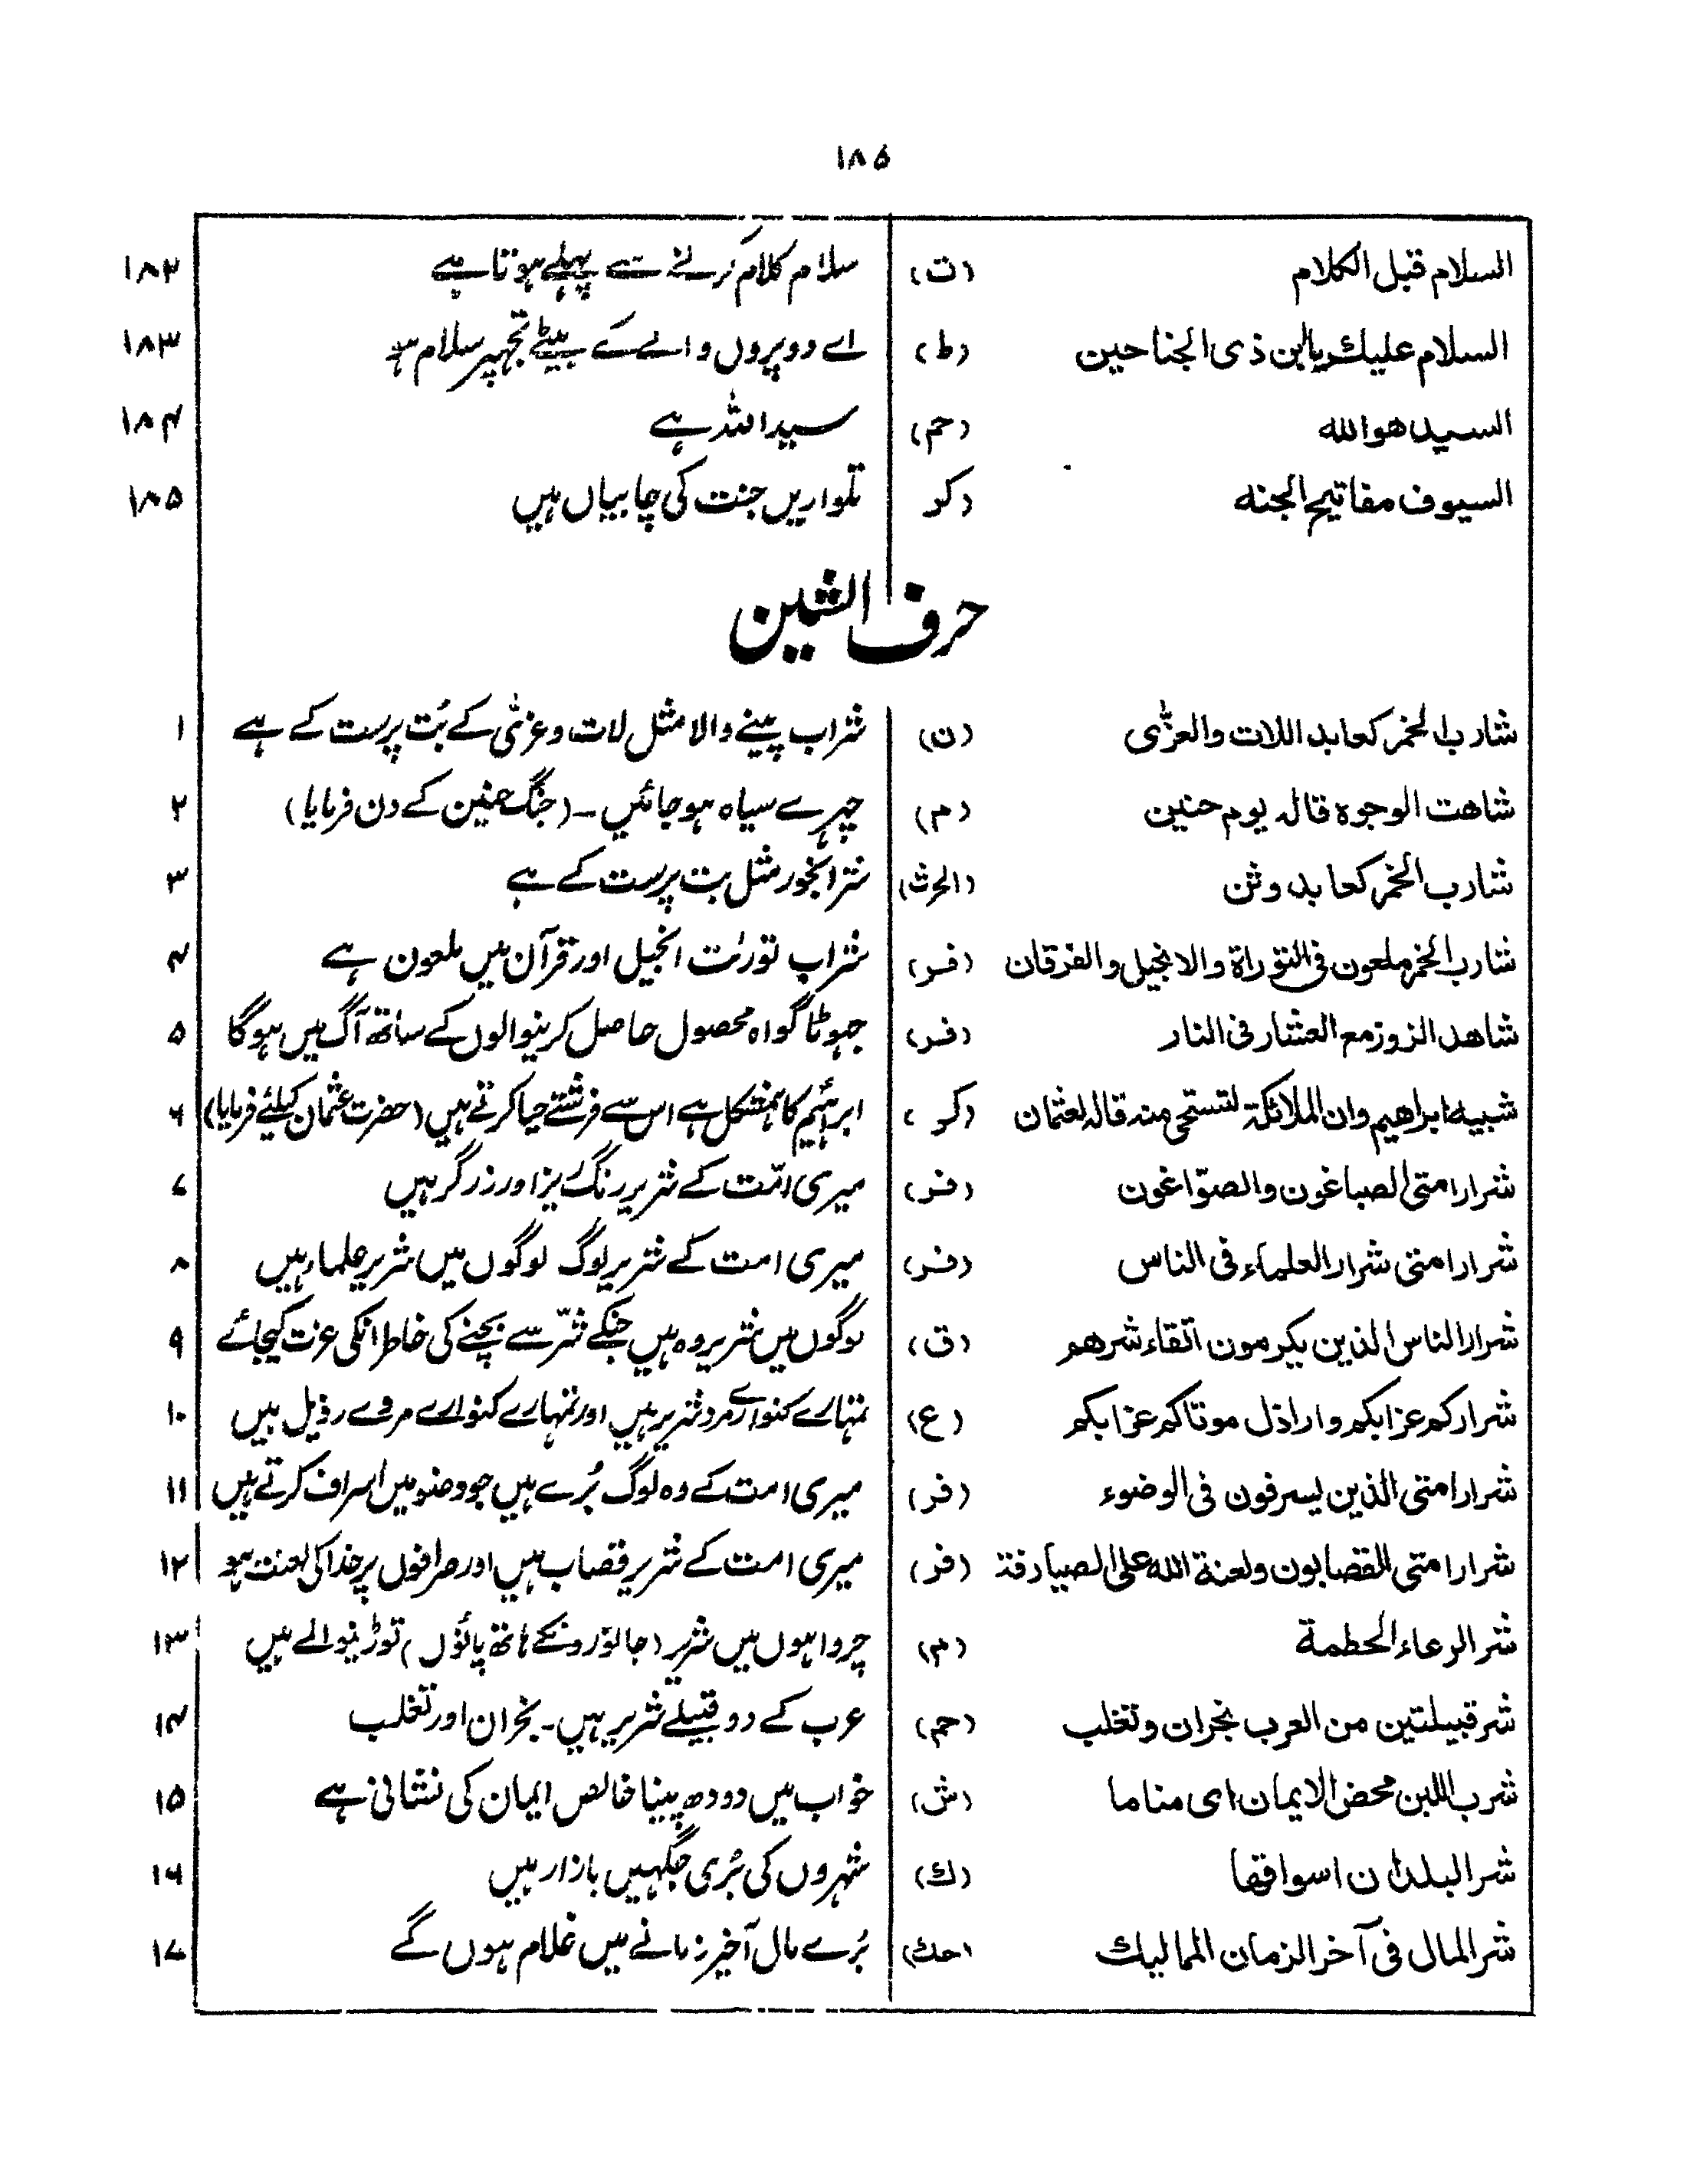 ۱۸۵
السلام قبل الکلام (ت) سلام کلام کرنے سے پہلے ہوتا ہے ۱۸۲
السلام علیك یا ابن ذی الجناحین (ط) اے دو پروں والے کے بیٹے تجہپر سلام ہے ۱۸۳
السید هو الله (حم) سید اللہ ہے ۱۸۴
السیوف مفاتیح الجنه (کر تلواریں جنت کی چابیاں ہیں ۱۸۵
حرف الشین
شارب الخمر کعابد اللات والعزّٰی (ن) شراب پینے والا مثل لات و عزیٰ کے بُت پرست کے ہے ۱
شاهت الوجوه قاله یوم حنین (م) چہرے سیاہ ہو جائیں ۔ (جنگ حنین کے دن فرمایا) ۲
شارب الخمر کعابد وثن (الحرث) شرابخور مثل بت پرست کے ہے ۳
شارب الخمر ملعون فی التوراة والانجیل والفرقان (فر) شرابی تورٰت انجیل اور قرآن میں ملعون ہے ۴
شاهد الزور مع العشار فی النار (فر) جہوٹا گواہ محصول حاصل کرنیوالوں کے ساتھ آگ میں ہوگا ۵
شبیه ابراهیم وان الملائکة لتستحی منه قاله لعثمان (کر) ابرہیم کا ہمشکل ہے اس سے فرشتے حیا کرتے ہیں (حضرت عثمان کیلئے فرمایا) ۶
شرار امتی الصباغون والصوّاغون (فر) میری امّت کے شریر رنگریز اور زرگر ہیں ۷
شرار امتی شرار العلماء فی الناس (فر) میری امت کے شریر لوگ لوگوں میں شریر علماء ہیں ۸
شرار الناس الذین یکرمون اتقاء شرهم (ق) لوگوں میں شریر وہ ہیں جنکے شرّ سے بچنے کی خاطر انکی عزت کیجائے ۹
شرارکم عزابکم واراذل موتاکم عزابکم (ع) تمہارے کنوارے مرد شریر ہیں اور تمہارے کنوارے مردے رذیل ہیں ۱۰
شرار امتی الذین یسرفون فی الوضوء (فر) میری امت کے وہ لوگ بُرے ہیں جو وضو میں اسراف کرتے ہیں ۱۱
شرار امتی القصابون ولعنة الله علی الصیارفة (فر) میری امت کے شریر قصاب ہیں اور صرافوں پر خدا کی لعنت ہو ۱۲
شر الرعاء الحطمة (م) چرواہوں میں شریر (جانوروںکے ہاتھ پاؤں) توڑنیوالے ہیں ۱۳
شر قبیلتین من العرب نجران وتغلب (حم) عرب کے دو قبیلے شریر ہیں ۔ نجران اور تغلب ۱۴
شرب اللبن محض الایمان ای مناما (ش) خواب میں دودھ پینا خالص ایمان کی نشانی ہے ۱۵
شر البلدان اسواقها (ك) شہروں کی بُری جگہیں بازار ہیں ۱۶
شر المال فی آخر الزمان الممالیك (حك) بُرے مال آخیر زمانے میں غلام ہوں گے ۱۷